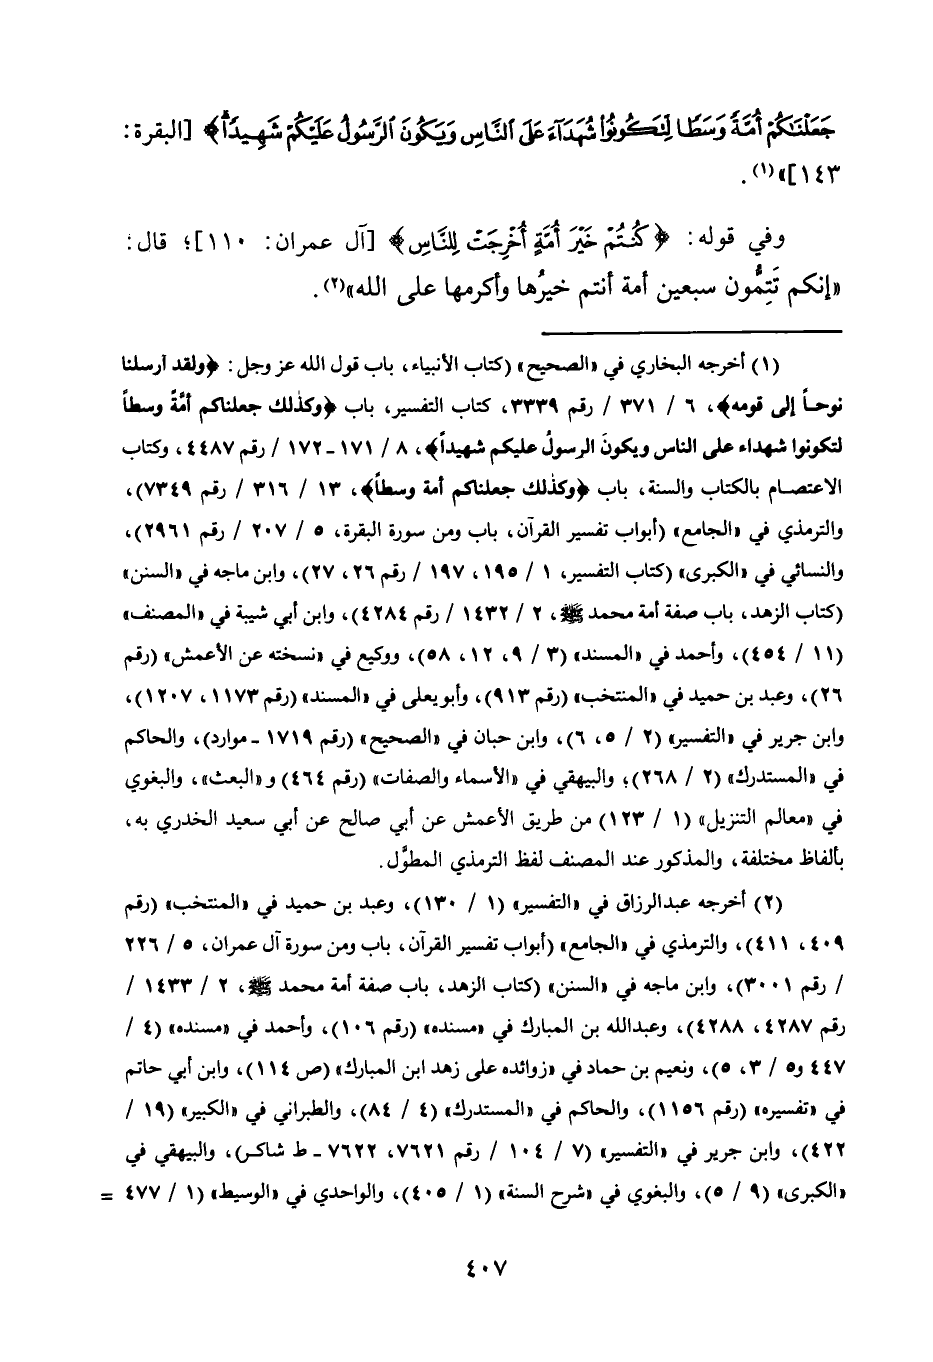 جَعَلْنَٰكُمْ أُمَّةً وَسَطًا لِّتَكُونُوا۟ شُهَدَآءَ عَلَى ٱلنَّاسِ وَيَكُونَ ٱلرَّسُولُ عَلَيْكُمْ شَهِيدًا﴾ [البقرة:
١٤٣]»(١).
وفي قوله: ﴿كُنتُمْ خَيْرَ أُمَّةٍ أُخْرِجَتْ لِلنَّاسِ﴾ [آل عمران: ١١٠]؛ قال:
«إنكم تَتِمُّون سبعين أمة أنتم خيرُها وأكرمها على الله»(٢).
(١) أخرجه البخاري في «الصحيح» (كتاب الأنبياء، باب قول الله عز وجل: ﴿ولقد أرسلنا
نوحاً إلى قومه﴾، ٦ / ٣٧١ / رقم ٣٣٣٩، كتاب التفسير، باب ﴿وكذلك جعلناكم أمَّةً وسطاً
لتكونوا شهداء على الناس ويكونَ الرسولُ عليكم شهيداً﴾، ٨ / ١٧١ ـ ١٧٢ / رقم ٤٤٨٧، وكتاب
الاعتصام بالكتاب والسنة، باب ﴿وكذلك جعلناكم أمة وسطاً﴾، ١٣ / ٣١٦ / رقم ٧٣٤٩)،
والترمذي في «الجامع» (أبواب تفسير القرآن، باب ومن سورة البقرة، ٥ / ٢٠٧ / رقم ٢٩٦١)،
والنسائي في «الكبرى» (كتاب التفسير، ١ / ١٩٥، ١٩٧ / رقم ٢٦، ٢٧)، وابن ماجه في «السنن»
(كتاب الزهد، باب صفة أمة محمد ﷺ، ٢ / ١٤٣٢ / رقم ٤٢٨٤)، وابن أبي شيبة في «المصنف»
(١١ / ٤٥٤)، وأحمد في «المسند» (٣ / ٩، ١٢، ٥٨)، ووكيع في «نسخته عن الأعمش» (رقم
٢٦)، وعبد بن حميد في «المنتخب» (رقم ٩١٣)، وأبو يعلى في «المسند» (رقم ١١٧٣، ١٢٠٧)،
وابن جرير في «التفسير» (٢ / ٥، ٦)، وابن حبان في «الصحيح» (رقم ١٧١٩ ـ موارد)، والحاكم
في «المستدرك» (٢ / ٢٦٨)؛ والبيهقي في «الأسماء والصفات» (رقم ٤٦٤) و«البعث»، والبغوي
في «معالم التنزيل» (١ / ١٢٣) من طريق الأعمش عن أبي صالح عن أبي سعيد الخدري به،
بألفاظ مختلفة، والمذكور عند المصنف لفظ الترمذي المطوَّل.
(٢) أخرجه عبدالرزاق في «التفسير» (١ / ١٣٠)، وعبد بن حميد في «المنتخب» (رقم
٤٠٩، ٤١١)، والترمذي في «الجامع» (أبواب تفسير القرآن، باب ومن سورة آل عمران، ٥ / ٢٢٦
/ رقم ٣٠٠١)، وابن ماجه في «السنن» (كتاب الزهد، باب صفة أمة محمد ﷺ، ٢ / ١٤٣٣ /
رقم ٤٢٨٧، ٤٢٨٨)، وعبدالله بن المبارك في «مسنده» (رقم ١٠٦)، وأحمد في «مسنده» (٤ /
٤٤٧ و٥ / ٣، ٥)، ونعيم بن حماد في «زوائده على زهد ابن المبارك» (ص ١١٤)، وابن أبي حاتم
في «تفسيره» (رقم ١١٥٦)، والحاكم في «المستدرك» (٤ / ٨٤)، والطبراني في «الكبير» (١٩ /
٤٢٢)، وابن جرير في «التفسير» (٧ / ١٠٤ / رقم ٧٦٢١، ٧٦٢٢ ـ ط شاكر)، والبيهقي في
«الكبرى» (٩ / ٥)، والبغوي في «شرح السنة» (١ / ٤٠٥)، والواحدي في «الوسيط» (١ / ٤٧٧ =
٤٠٧